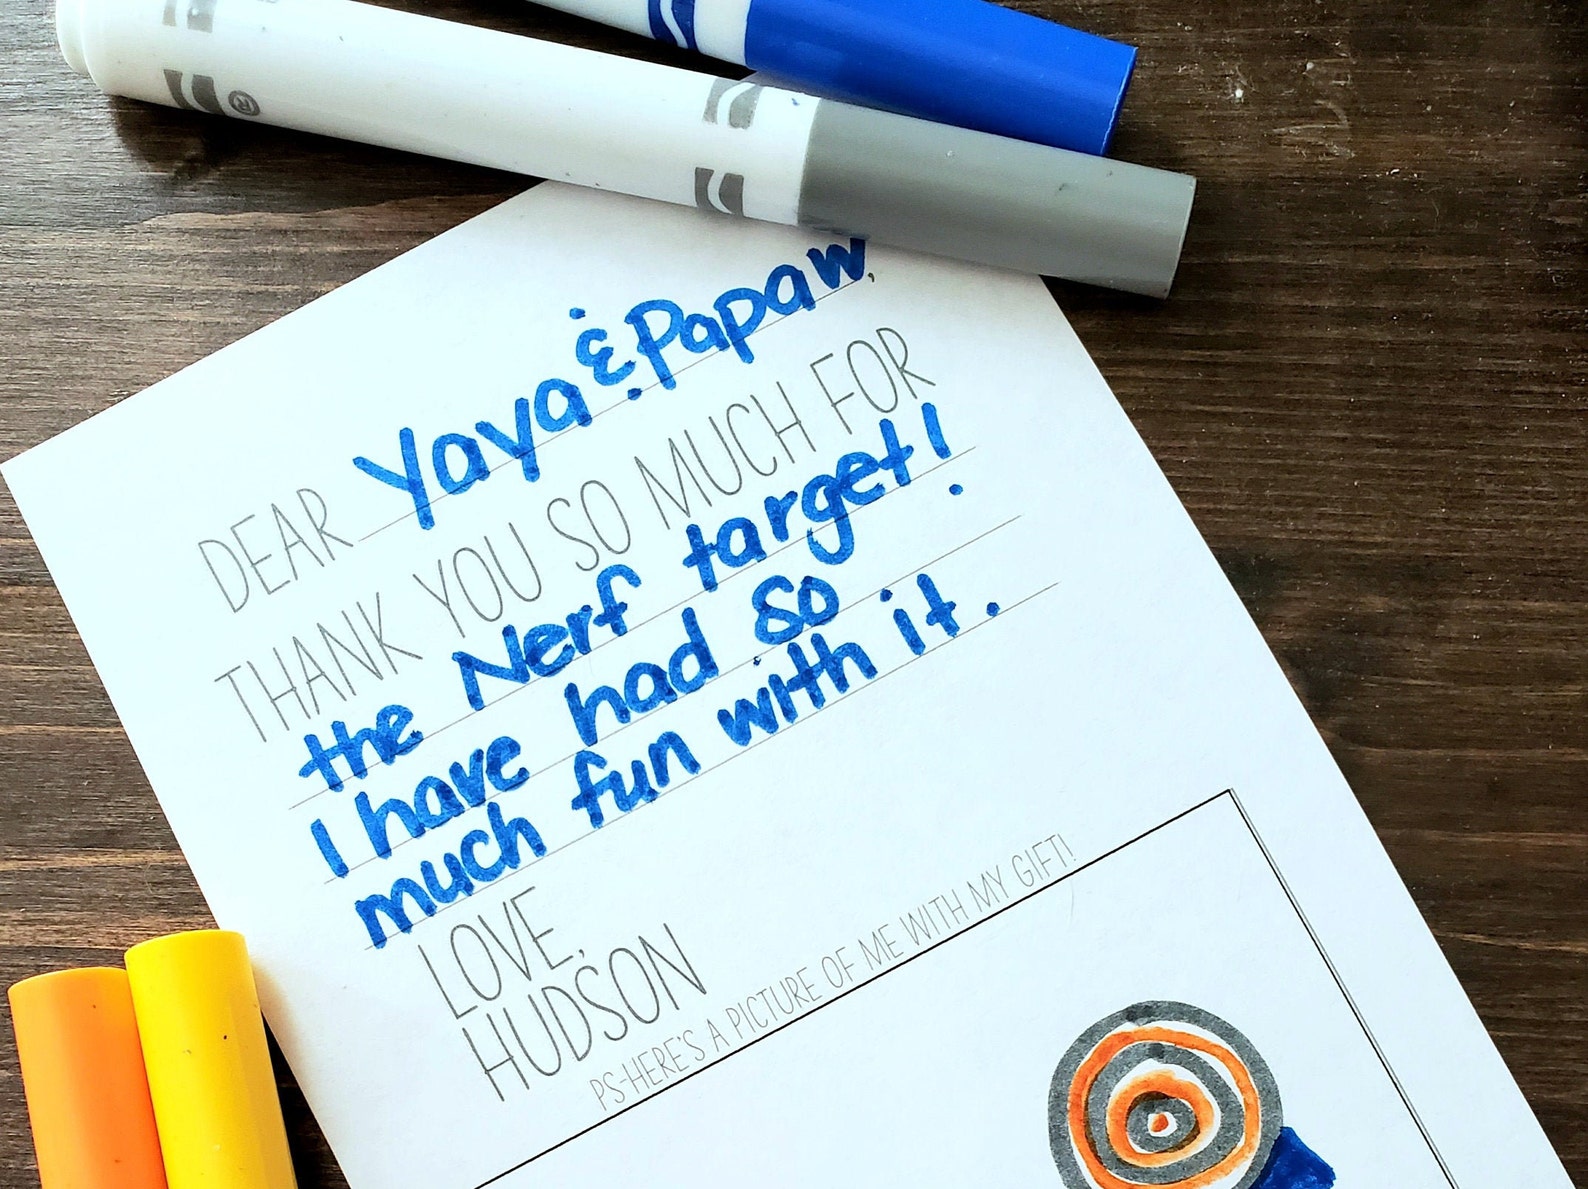 DEAR Yaya & Papaw,
THANK YOU SO MUCH FOR
the Nerf target!
I have had so
much fun with it.
LOVE,
HUDSON
PS-HERE'S A PICTURE OF ME WITH MY GIFT!
®